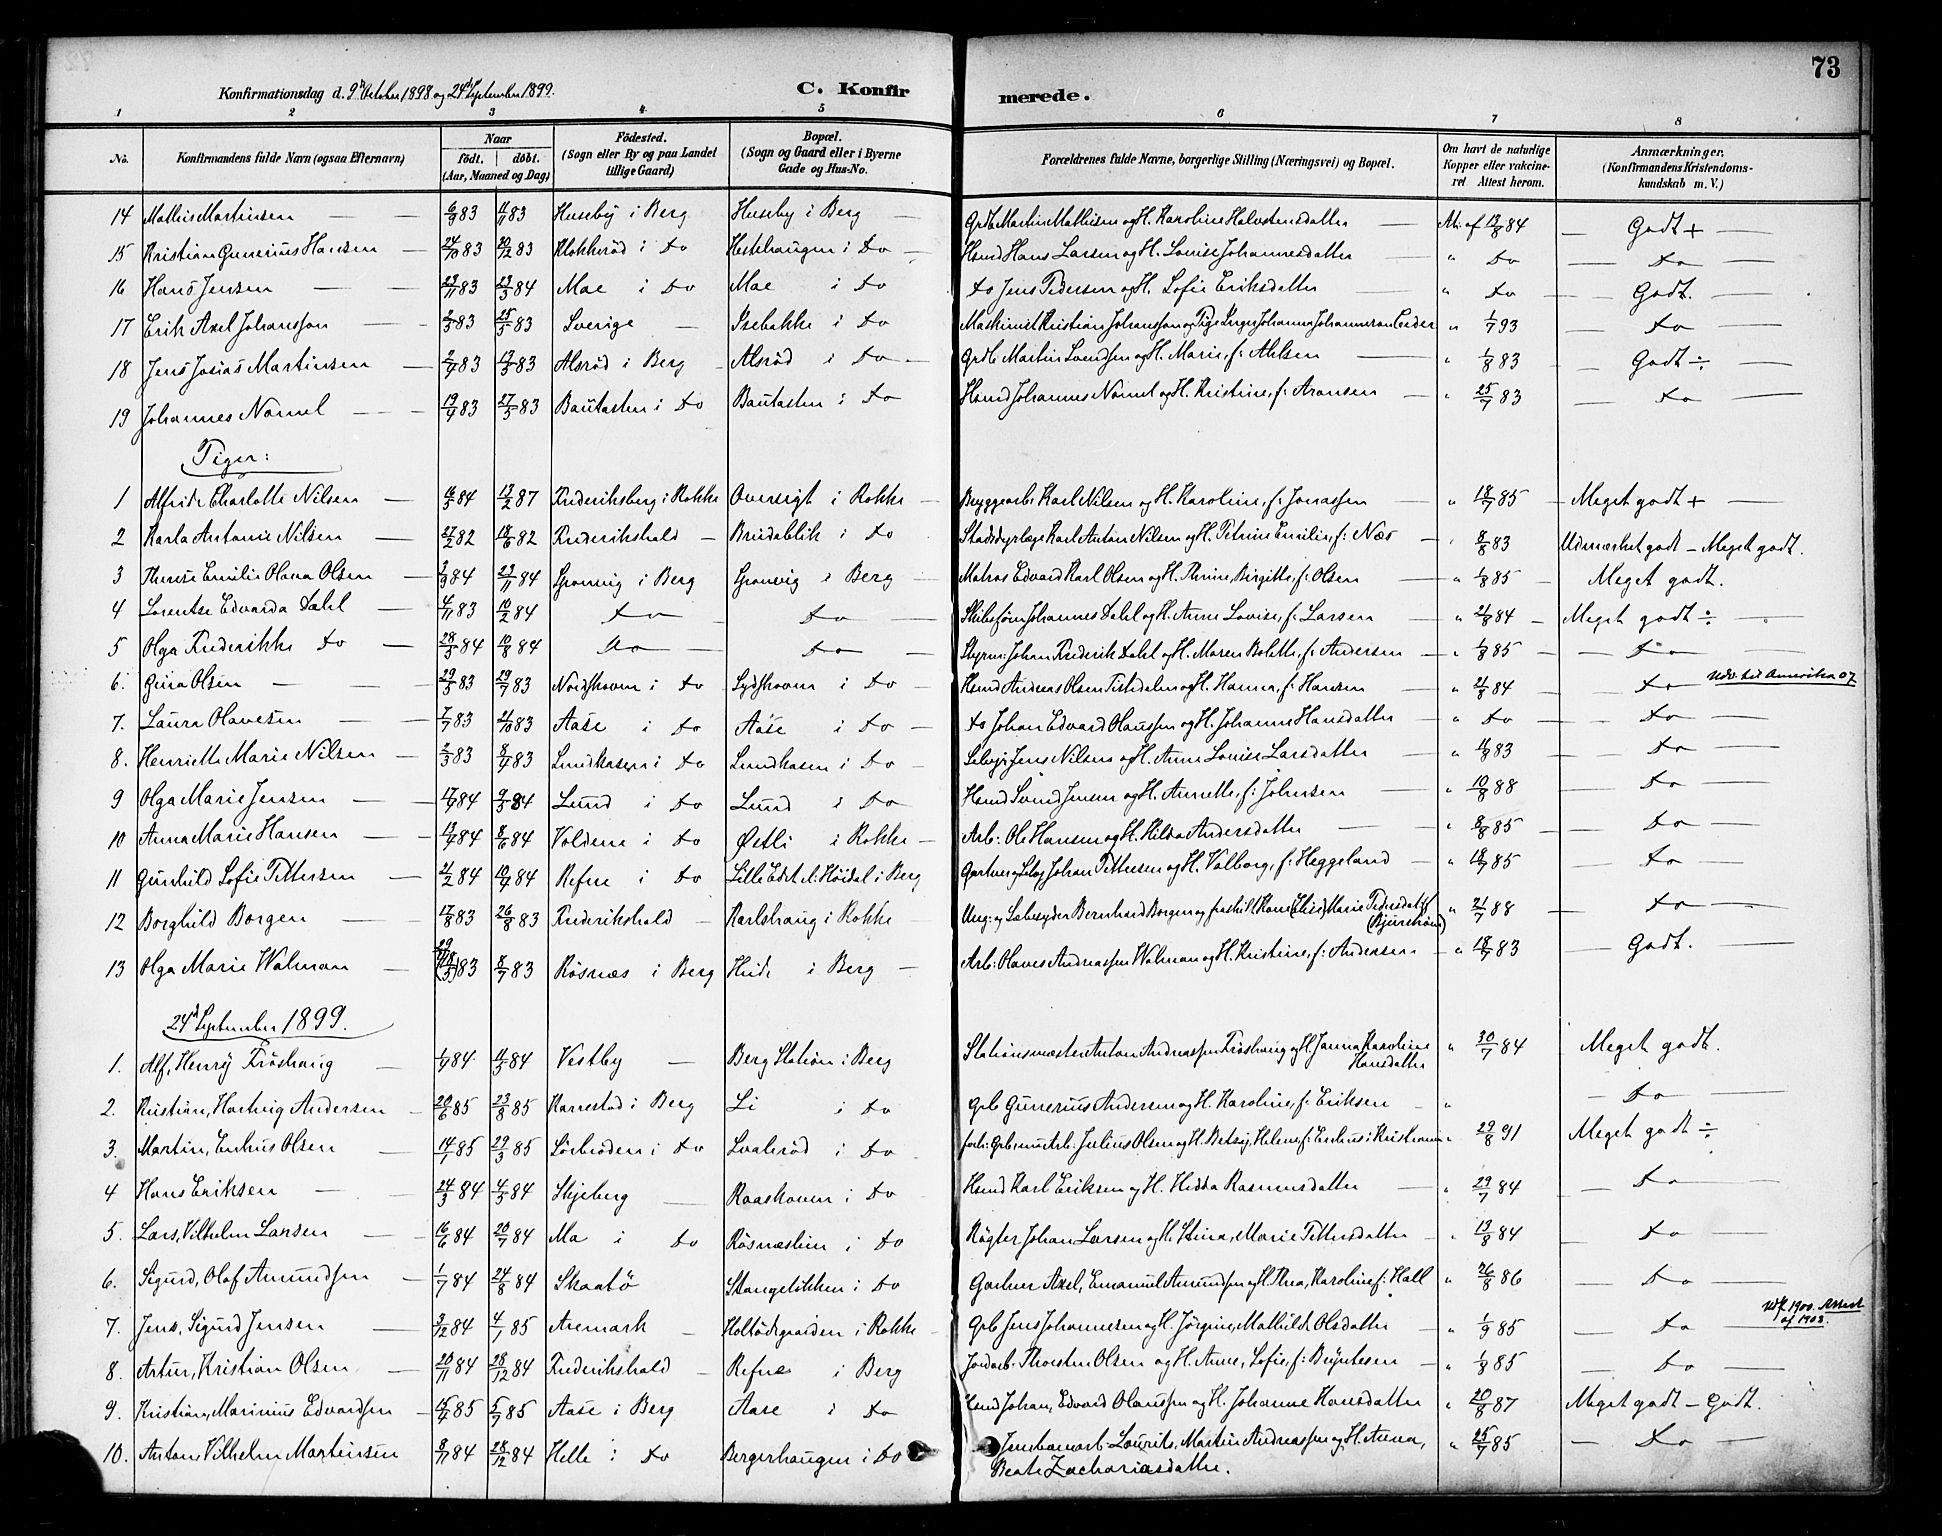 73
Konfirmationsdag d. 9de October 1898 og 24de September 1899. C. Konfirmerede.
1 2 3 4 5 6 7 8
No. Konfirmandens fulde Navn (ogsaa Efternavn) Naar født. døbt. (Aar, Maaned og Dag) Fødested. (Sogn eller By og paa Landet tillige Gaard) Bopæl. (Sogn og Gaard eller i Byerne Gade og Hus-No. Forældrenes fulde Navne, borgerlige Stilling (Næringsvei) og Bopæl. Om havt de naturlige Kopper eller vakcineret Attest herom. Anmærkninger, (Konfirmandens Kristendomskundskab m. V.)
14 Mathis Martinsen — 6/9 83 11/11 83 Huseby i Berg Huseby i Berg Grdb Martin Mathisen og H. Karoline Halvorsensdatter — At. af 12/8 84 — Godt + —
15 Kristian Gunerius Hansen — 24/10 83 26/12 83 Klokkerød i do Hestehaugen i do — Hsmd Hans Larsen og H. Lovise Johannesdatter — " do — do —
16 Hans Jensen — 23/11 83 23/3 84 Moe i do Moe i do do Jens Pedersen og H. Sofie Eriksdatter — " do — Godt. —
17 Erik Axel Johansson — 2/3 83 25/3 83 Sverige — Isebakke i do Maskinist Kristian Johansson og Pige Inger Johanna Johannesen Ceder " 1/7 93 — do —
18 Jens Josias Martinsen — 2/4 83 13/5 83 Alsrød i Berg Alsrød i do — Grdb Martin Svendsen og H. Marie, f: Ahlsen — " 1/8 83 — Godt ÷ —
19 Johannes Nomel — 19/4 83 27/5 83 Bautasten i do Bautasten i do Hsmd Johannes Nomel og H. Kristine, f: Aronsen — " 25/7 83 — do —
Piger:
1 Alfride Charlotte Nilsen — 16/3 84 13/2 87 Frederiksberg i Rokke Oversigt i Rokke — Byggearb: Karl Nilsen og H. Karoline, f: Jonassen " 18/7 85 — Meget godt + —
2 Karla Antonie Nilsen — 27/2 82 18/6 82 Frederikshald — Breidablik i do Stadsdyrlæge Karl Anton Nilsen og H. Petrine Emilie, f: Næs — " 8/8 83 Udmærket godt – Meget godt.
3 Therese Emilie Olava Olsen — 2/9 84 23/11 84 Grønvig i Berg Grønvig i Berg — Matros Edvard Karl Olsen og H. Thrine, Birgitte, f: Olsen " 1/8 85 — Meget godt.
4 Lorentse Edvarda Dahl — 4/11 83 10/2 84 do do — Skibsfører Johannes Dahl og H. Anne Lovise, f: Larsen — " 21/8 84 — Meget godt ÷ —
5 Olga Frederikke do — 28/5 84 10/8 84 do — do — Styrm: Johan Frederik Dahl og H. Maren Bolette, f: Andersen — " 1/8 85 — do —
6. Gina Olsen — 29/5 83 29/7 83 Nordshoven i do Sydshoven i do — Hsmd Andreas Olsen Tistedalen og H. Hanna, f: Hansen — " 21/8 84 do Udv. til Amerika 07
7. Laura Olavesen — 7/7 83 21/10 83 Aase i do Aase i do — do Johan Edvard Olaussen og H. Johanne Hansdatter — " do — do —
8. Henriette Marie Nilsen — 2/3 83 8/7 83 Lundkasen i do Lundkasen i do — Selvej: Jens Nilsen og H. Anne Lovise Larsdatter " 11/9 83 — do —
9 Olga Marie Jensen — 17/1 84 9/3 84 Lund i do Lund i do Hsmd Svend Jensen og H. Annette, f: Johnsen — " 10/8 88 — do —
10 Anna Marie Hansen — 12/4 84 8/6 84 Voldene i do Østli i Rokke — Arb: Ole Hansen og H. Hilda Andersdatter — " 8/8 85 — do —
11 Gunhild Sofie Pettersen — 21/2 84 10/4 84 Refne i do Lille Edet el: Høidal i Berg Gartner og Selvej Johan Pettersen og H. Valborg, f: Heggeland — " 18/7 85 — do —
12 Borghild Borgen — 17/8 83 26/8 83 Frederikshald — Karlshaug i Rokke — Ung: og Selveyder Bernhard Borgen og fraskilt Kone Elise Marie Pedersdatter (Bjurstrøm) " 21/7 88 — do —
13 Olga Marie Walman — 29/4 (18/5) 83 8/7 83 Røsnæs i Berg Heide i Berg — Arb: Olaves Andreassen Walman og H. Kristine, f: Andersen — " 18/7 83 — Godt. —
24de September 1899.
1. Alf, Henry Frøshaug — 1/1 84 11/5 84 Vestby — Berg Station i Berg Stationsmester Anton Andreassen Frøshaug og H. Janna Karoline Hansdatter " 30/7 84 Meget godt.
2. Kristian, Hartvig Andersen — 20/6 85 23/8 85 Karrestad i Berg Li i do Grb Gunerius Andersen og H. Karoline, f: Eriksen — " — do —
3. Martin, Enhus Olsen — 14/1 85 29/3 85 Sørbrøden i do Svalerød i do forh: Grb, nu Arb: Julius Olsen og H. Betzy, Helene f: Enhus i Kristiania " 29/8 91 Meget godt ÷
4 Hans Eriksen — 24/3 84 4/5 84 Skjeberg — Raaskoven i do Hsmd Karl Eriksen og H. Hedda Rasmusdatter — " 29/7 84 — do
5. Lars, Vilhelm Larsen — 16/6 84 20/7 84 Ma i do Røsnæslien i do Røgter Johan Larsen og H. Stina, Marie Pettersdatter — " 13/8 84 — do —
6. Sigurd, Olaf Amundsen — 1/7 84 24/8 84 Skaatø Stangeløkken i do Gartner Axel, Emanuel Amundsen og H. Thea, Karoline f: Hall " 26/8 86 — do —
7. Jens, Sigurd Jensen — 3/12 84 4/1 85 Aremark — Holtødegaarden i Rokke — Grb Jens Johannesen og H. Jørgine, Mathilde Olsdatter — " 1/9 85 — do — Udfl. 1900. Attest af 1903.
8. Artur, Kristian Olsen — 20/11 84 28/12 84 Frederikshald — Refne i Berg Jordarb. Thorsten Olsen og H. Anne, Sofie, f: Bryntesen — " 1/8 85 — do —
9. Kristian, Marinius Edvardsen — 15/4 85 5/7 85 Aase i Berg Aase i do Hsmd Johan, Edvard Olaussen og H. Johanne Hansdatter " 20/8 87 Meget godt – Godt.
10. Anton, Vilhelm Martinsen 8/11 84 28/12 84 Helle i do Bergerhaugen i do Jernbanearb. Laurits, Martin Andreassen og H. Anna, Beate Zachariasdatter. " 25/7 85 — do —